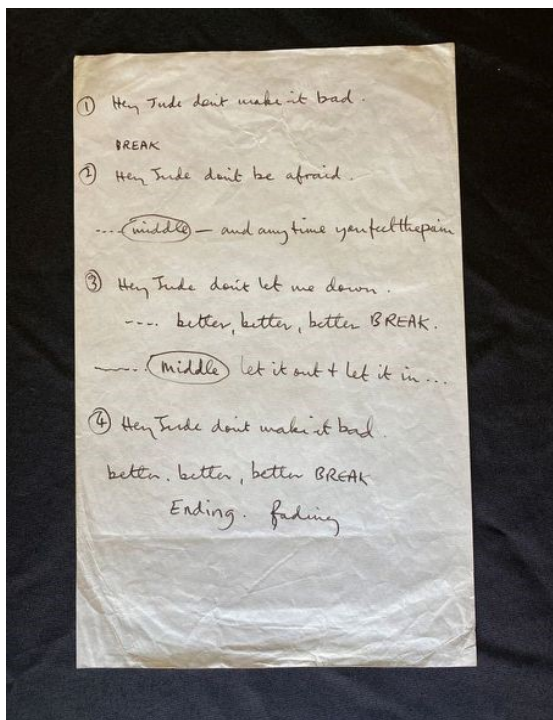 ① Hey Jude don't make it bad.
BREAK
② Hey Jude don't be afraid.
.... middle — and any time you feel the pain
③ Hey Jude don't let me down.
---. better, better, better BREAK.
——. middle let it out + let it in ...
④ Hey Jude don't make it bad.
better. better, better BREAK
Ending. fading